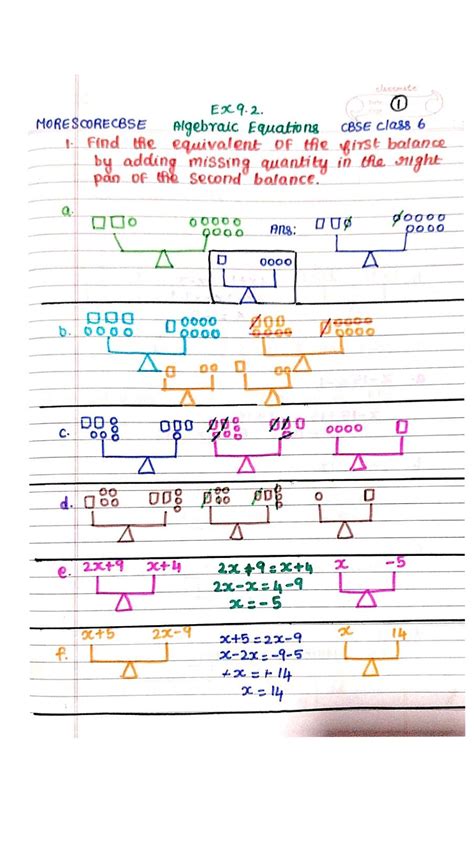 classmate
Ex 9.2. 1
MORESCORECBSE Algebraic Equations CBSE class 6
1. Find the equivalent of the first balance
by adding missing quantity in the right
pan of the second balance.
a. Ans:
b.
c.
d.
e. 2x+9 x+4 2x+9=x+4 x -5
2x-x=4-9
x=-5
f. x+5 2x-9 x+5=2x-9 x 14
x-2x=-9-5
x=14